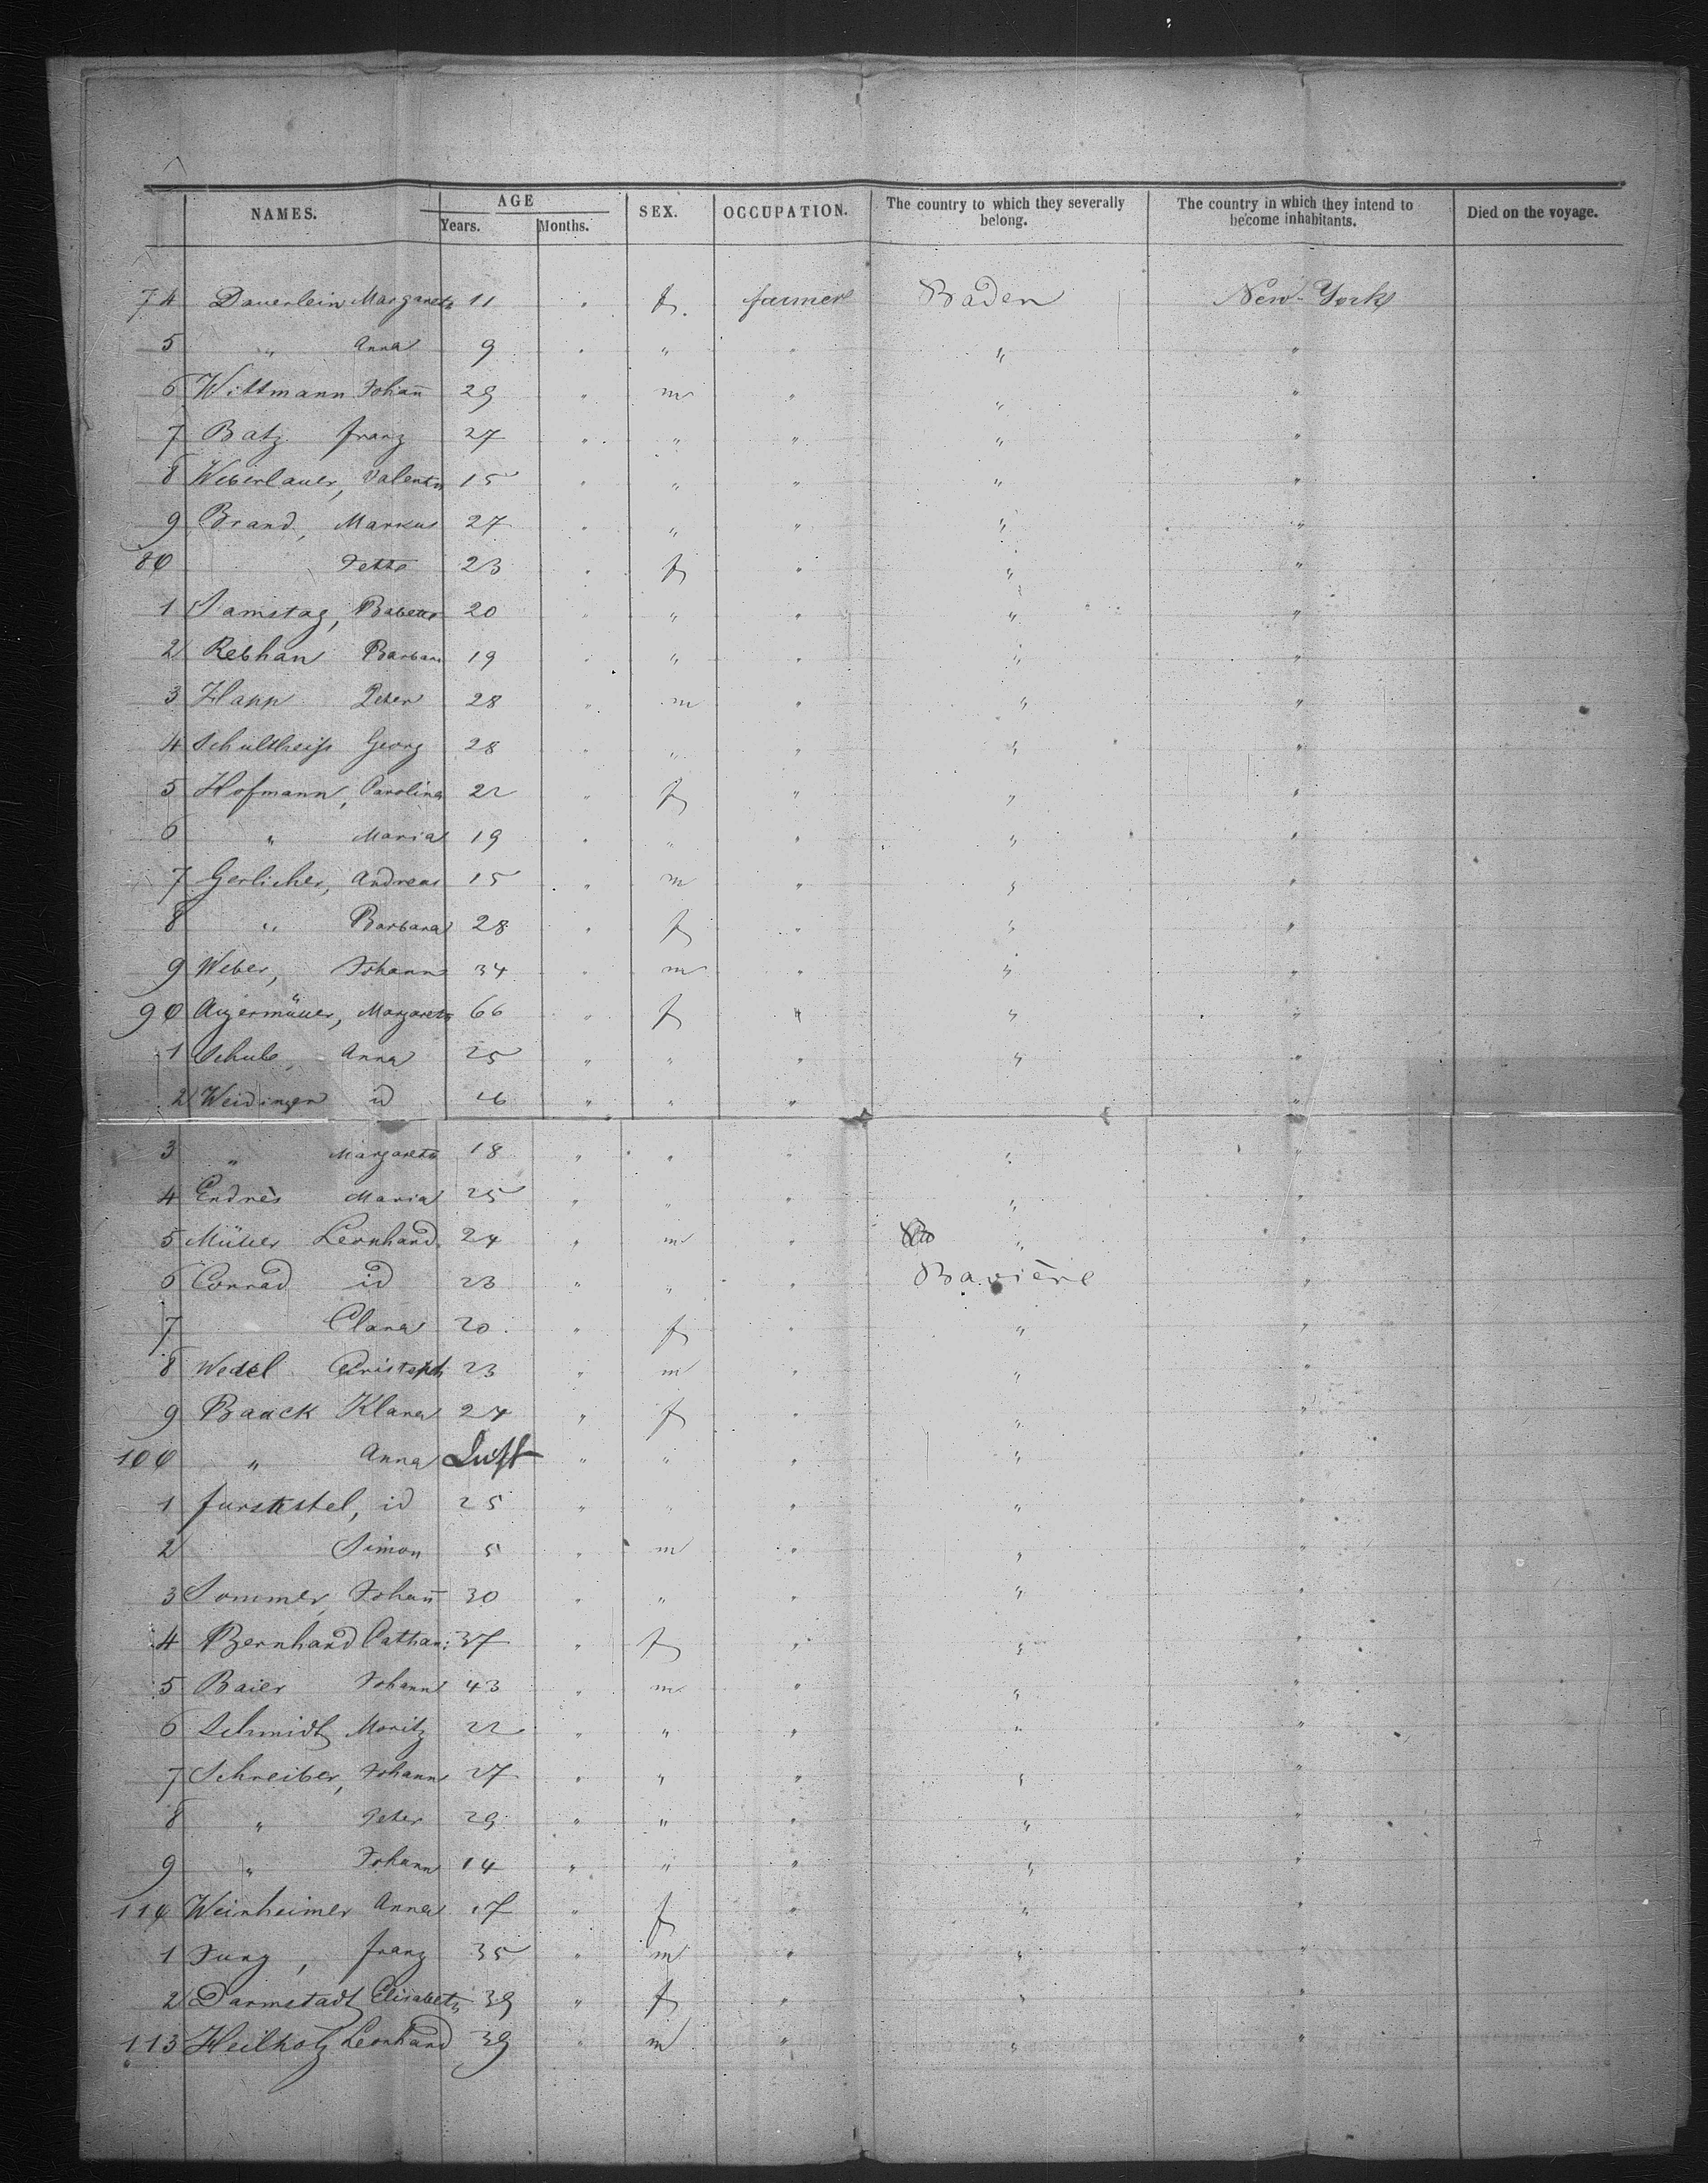 NAMES. AGE SEX. OCCUPATION. The country to which they severally belong. The country in which they intend to become inhabitants. Died on the voyage.
Years. Months.
74 Dauerlein Margareta 11 " f. farmers Baden New-York
5 " Anna 9 " " " " "
6 Wittmann Johañ 29 " m " " "
7 Batz franz 27 " " " " "
8 Weberlauer, Valentin 15 " " " " "
9 Brand, Markus 27 " " " " "
80 Jette 23 " f " " "
1 Samstag, Babette 20 " " " " "
2 Rebhan Barbara 19 " " " " "
3 Happ Peter 28 " m " " "
4 Schultheiß Georg 28 " " " " "
5 Hofmann, Carolina 22 " f " " "
6 " Maria 19 " " " " "
7 Gerlicher, Andreas 15 " m " " "
8 " Barbara 28 " f " " "
9 Weber, Johann 34 " m " " "
90 Augermüller, Margareta 66 " f " " "
1 Schub, Anna 25 " " " " "
2 Weidinger id 16 " " " " "
3 " Margareta 18 " " " " "
4 Endres Maria 25 " " " " "
5 Müller Leonhard 24 " m " " "
6 Conrad id 23 " " " Bavière "
7 Clara 20 " f " " "
8 Wedel Christoph 23 " m " " "
9 Baack Klara 24 " f " " "
100 " Anna " " " " "
1 id 25 " " " " "
2 Simon 5 " m " " "
3 Sommer, Johañ 30 " " " " "
4 Bernhard Cathar: 37 " f " " "
5 Baier Johann 43 " m " " "
6 Schmidt Moritz 22 " " " " "
7 Schreiber, Johann 27 " " " " "
8 " Peter 29 " " " " "
9 " Johann 14 " " " " "
110 Weinheimer Anna 17 " f " " "
1 Jung, franz 35 " m " " "
2 Darmstadt Elisabeth 39 " f " " "
113 Heilholz Leonhard 39 " m " " "